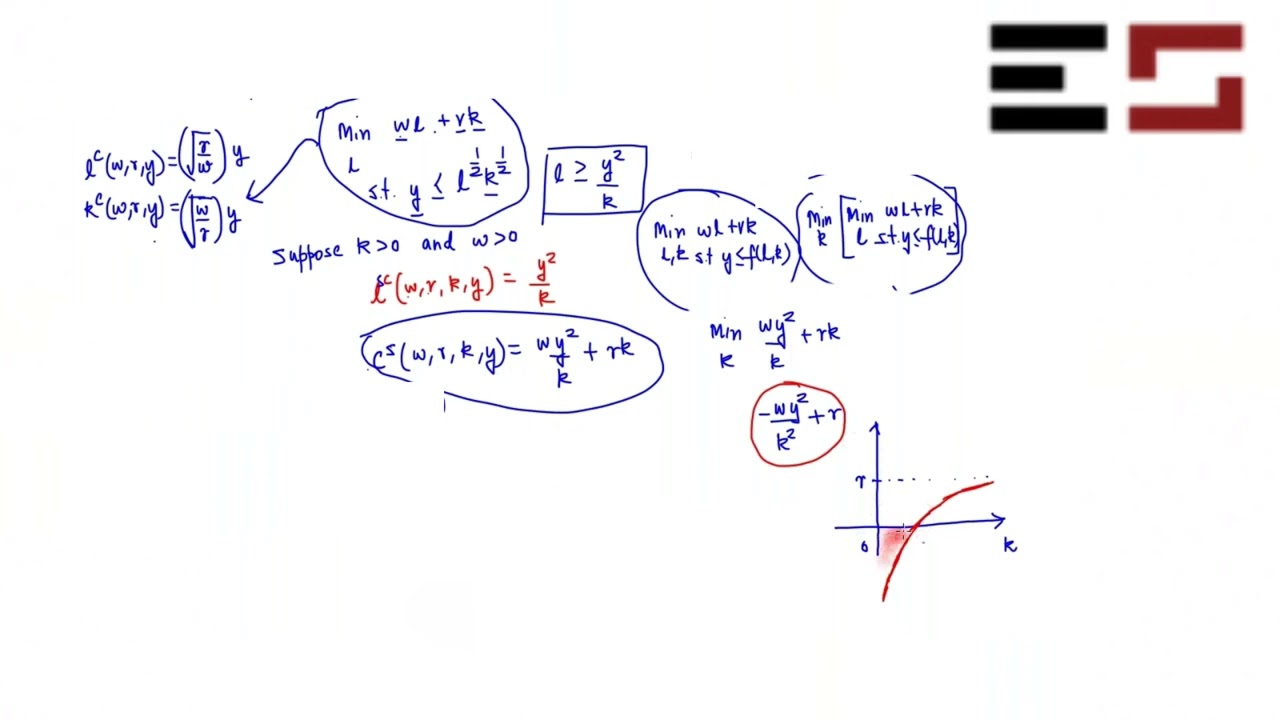 ES
Min wl + rk
l
s.t. y ≤ l^{1/2} k^{1/2}
l^c(w,r,y) = (√(r/w)) y
k^c(w,r,y) = (√(w/r)) y
l ≥ y²/k
Suppose k>0 and w>0
l^{sc}(w,r,k,y) = y²/k
c^s(w,r,k,y) = wy²/k + rk
Min wl+rk
l,k s.t y ≤ f(l,k)
Min [Min wl+rk
k l s.t. y ≤ f(l,k)]
Min wy²/k + rk
k
-wy²/k² + r
r
0
k